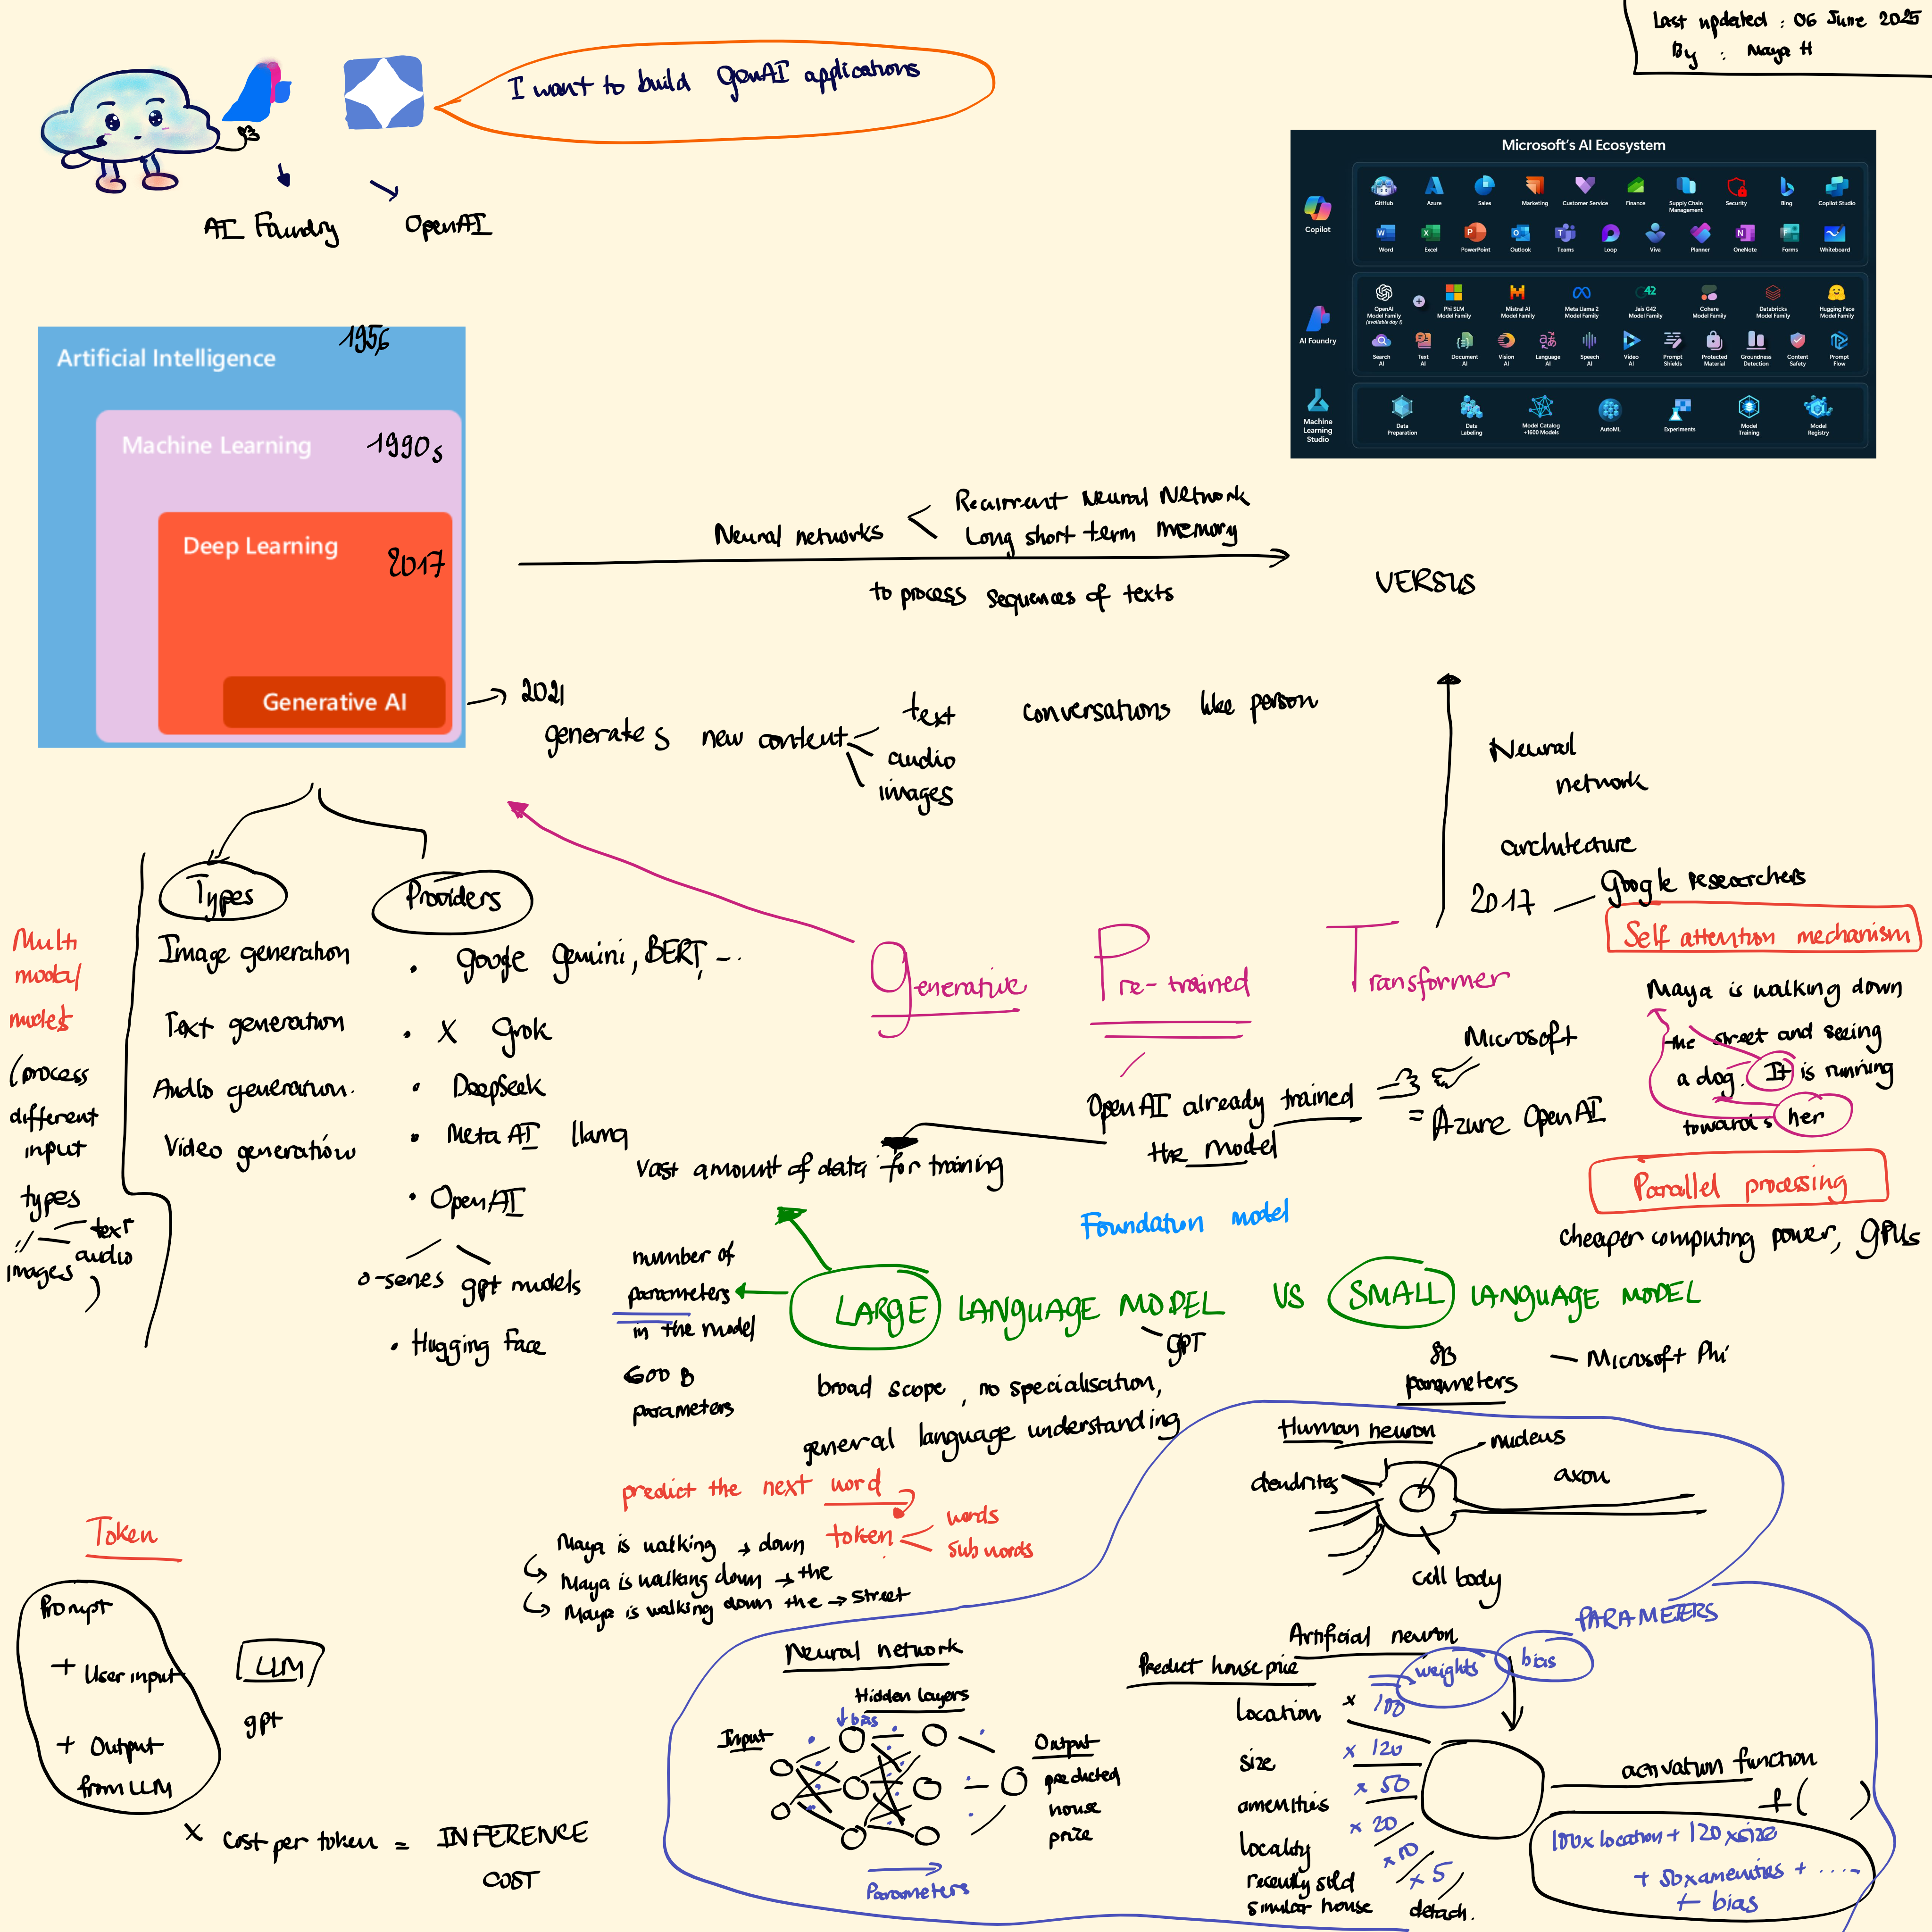 Last updated : 06 June 2025
By : Maya H
I want to build GenAI applications
AI Foundry
OpenAI
Microsoft's AI Ecosystem
Copilot
GitHub
Azure
Sales
Marketing
Customer Service
Finance
Supply Chain
Management
Security
Bing
Copilot Studio
Word
Excel
PowerPoint
Outlook
Teams
Loop
Viva
Planner
OneNote
Forms
Whiteboard
AI Foundry
OpenAI
Model Family
(available day 1)
Phi SLM
Model Family
Mistral AI
Model Family
Meta Llama 2
Model Family
Jais G42
Model Family
Cohere
Model Family
Databricks
Model Family
Hugging Face
Model Family
Search
AI
Text
AI
Document
AI
Vision
AI
Language
AI
Speech
AI
Video
AI
Prompt
Shields
Protected
Material
Groundness
Detection
Content
Safety
Prompt
Flow
Machine
Learning
Studio
Data
Preparation
Data
Labeling
Model Catalog
+1600 Models
AutoML
Experiments
Model
Training
Model
Registry
Artificial Intelligence
1956
Machine Learning
1990s
Deep Learning
2017
Generative AI
Neural networks
Recurrent Neural Network
Long short term memory
to process sequences of texts
VERSUS
2021
generates new content
text
audio
images
conversations like person
Neural
network
architecture
2017
Google researchers
Self attention mechanism
Maya is walking down
the street and seeing
a dog. It is running
towards her
Parallel processing
cheaper computing power, GPUs
Types
Image generation
Text generation
Audio generation.
Video generation
Multi
modal
models
(process
different
input
types
text
audio
images
)
Providers
• Google Gemini, BERT, -..
• X Grok
• DeepSeek
• Meta AI llama
• OpenAI
o-series
gpt models
• Hugging Face
Generative
Pre-trained
Transformer
OpenAI already trained
the model
Microsoft
= Azure OpenAI
Vast amount of data for training
Foundation model
number of
parameters
in the model
600 B
parameters
LARGE LANGUAGE MODEL VS SMALL LANGUAGE MODEL
GPT
8B
parameters
— Microsoft Phi
broad scope, no specialisation,
general language understanding
predict the next word
token
words
sub words
Maya is walking → down
Maya is walking down → the
Maya is walking down the → street
Token
Prompt
+ User input
+ Output
from LLM
LLM
gpt
x cost per token = INFERENCE
COST
Human neuron
nucleus
dendrites
axon
cell body
PARAMETERS
Neural network
Hidden layers
bias
Input
Output
predicted
house
price
Parameters
Artificial neuron
Predict house price
weights
bias
location x 100
size x 120
amenities x 50
locality x 20
recently sold
similar house
x 10
x 5
detach.
activation function
f( )
100x location + 120 x size
+ 50x amenities + ....
+ bias